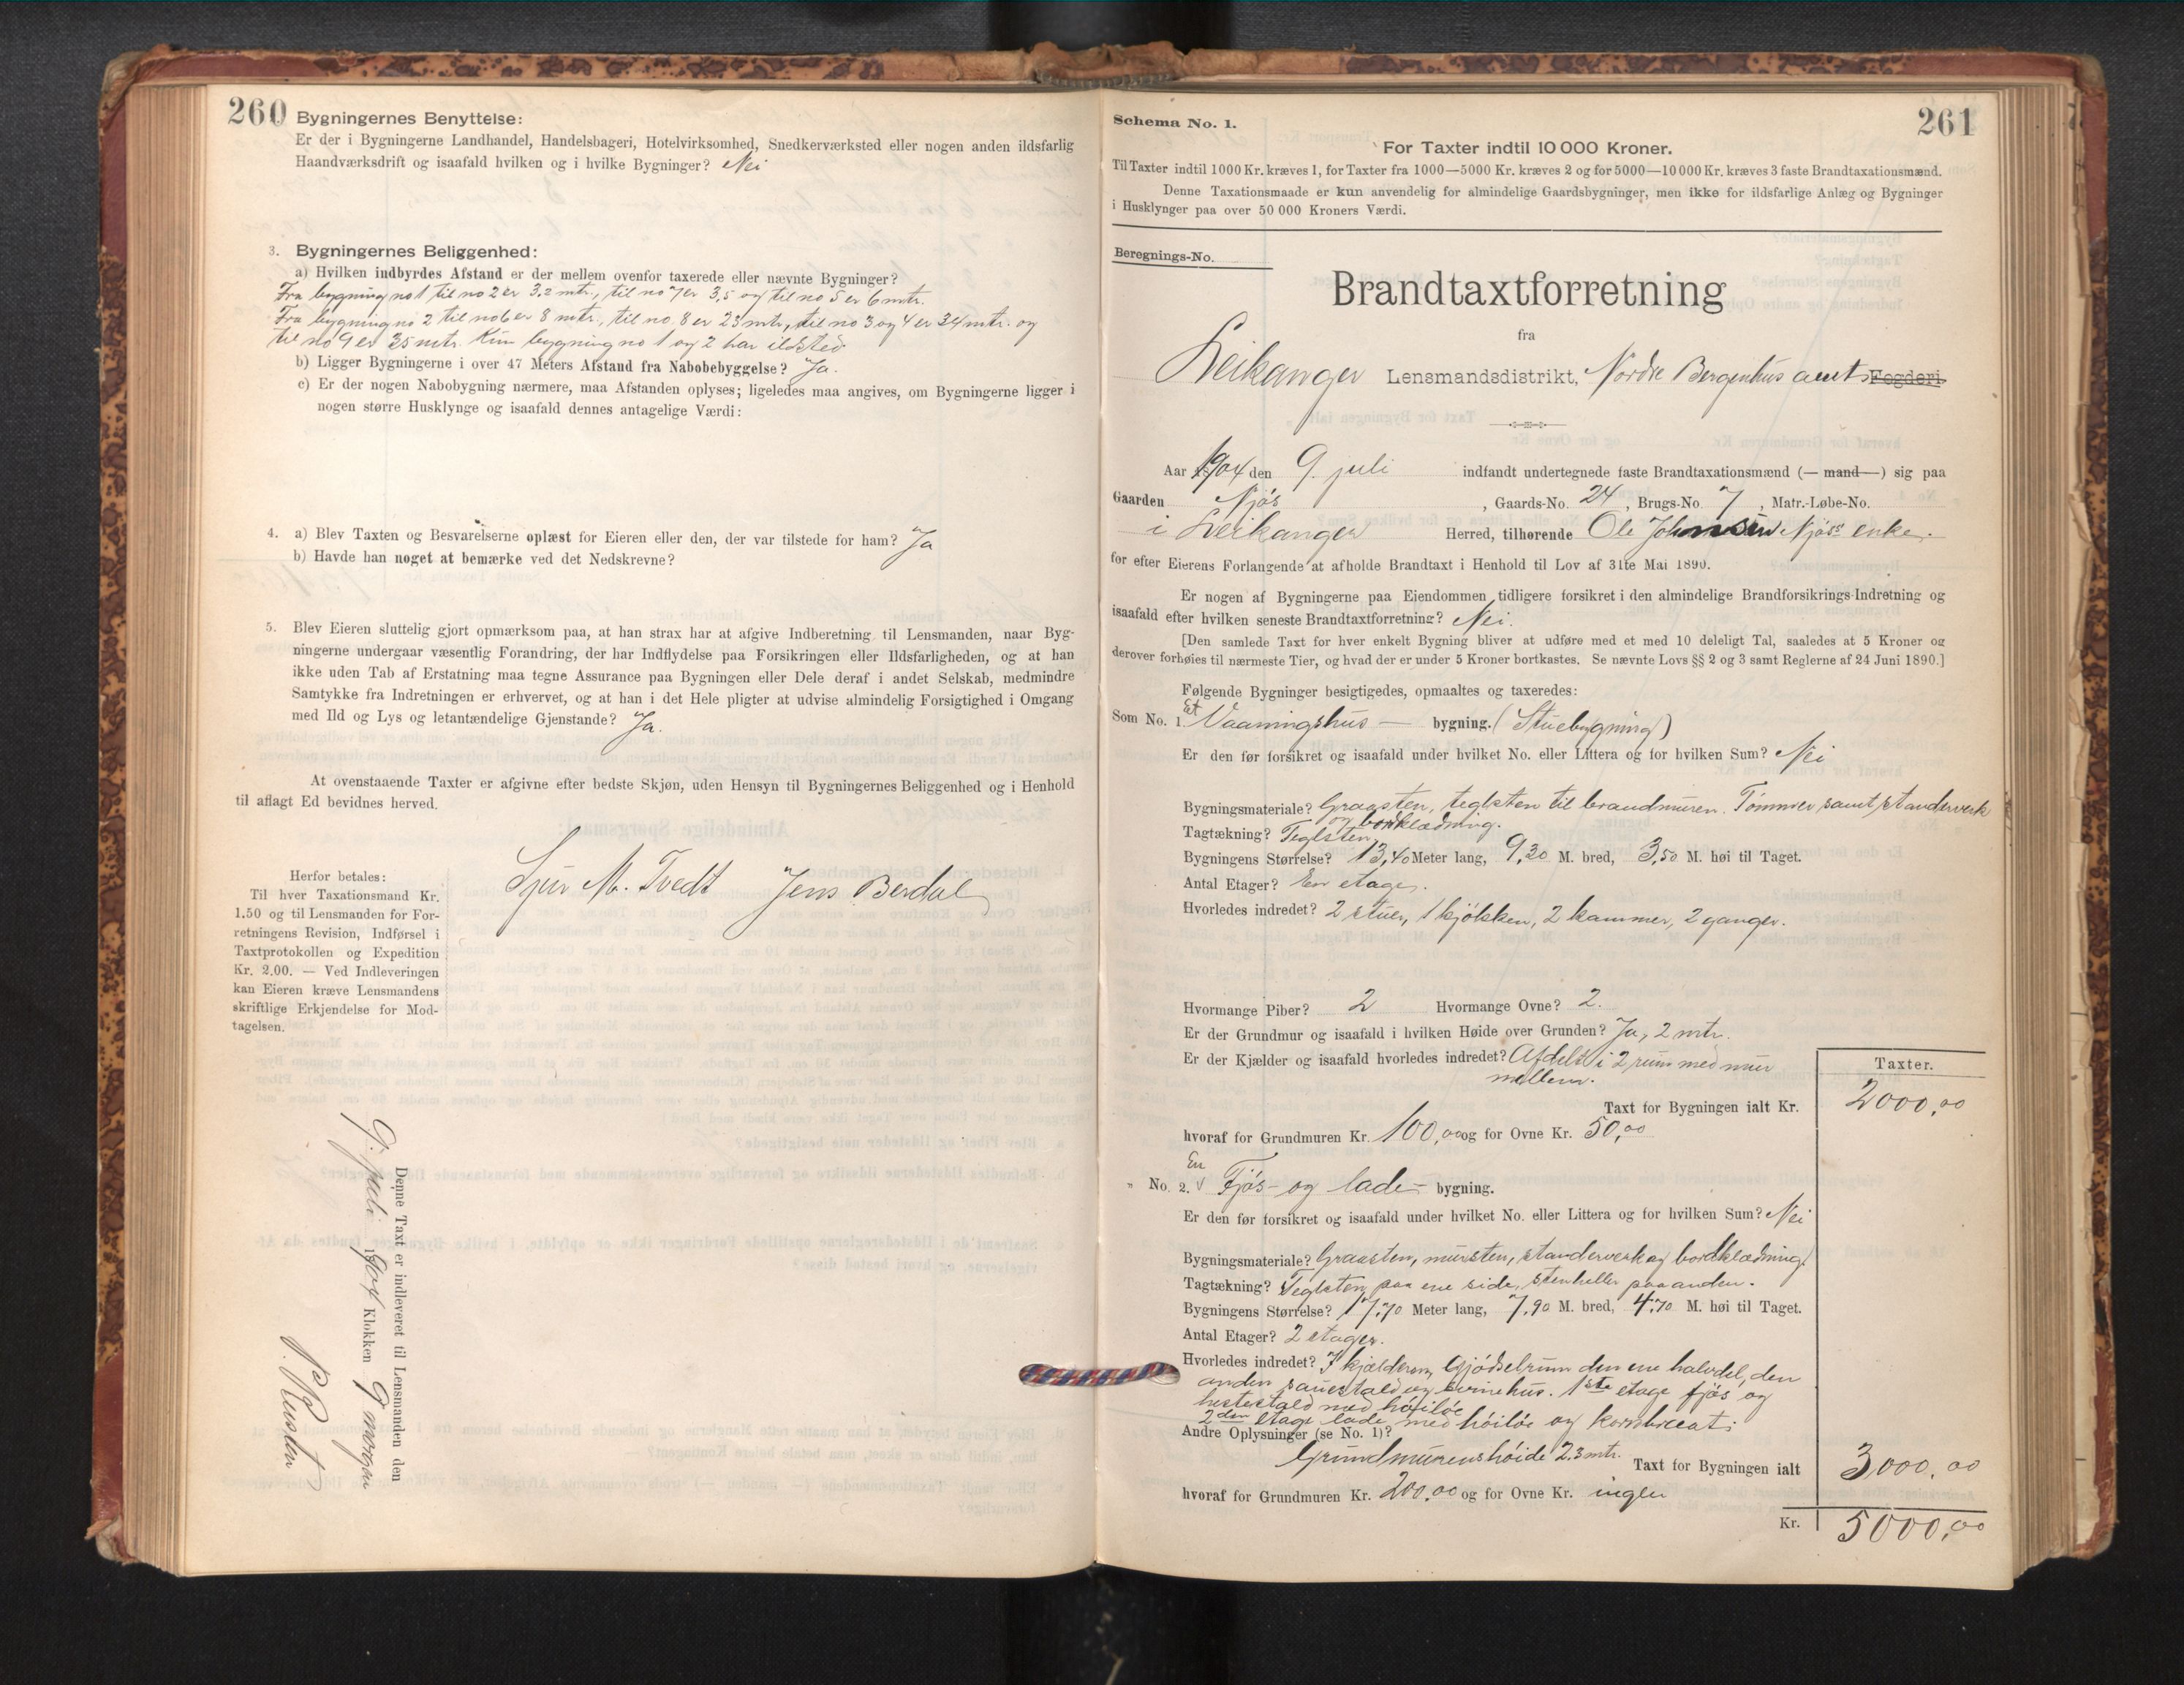 260
Bygningernes Benyttelse:
Er der i Bygningerne Landhandel, Handelsbageri, Hotelvirksomhed, Snedkerværksted eller nogen anden ildsfarlig
Haandværksdrift og isaafald hvilken og i hvilke Bygninger? Nei
3. Bygningernes Beliggenhed:
a) Hvilken indbyrdes Afstand er der mellem ovenfor taxerede eller nævnte Bygninger?
Fra bygning no 1 til no 2 er 3,2 mtr., til no 7 er 3,5 og til no 5 er 6 mtr.
Fra bygning no 2 til no 6 er 8 mtr., til no 8 er 23 mtr, til no 3 og 4 er 34 mtr. og
til no 9 er 35 mtr. Kun bygning no 1 og 2 har ildsted.
b) Ligger Bygningerne i over 47 Meters Afstand fra Nabobebyggelse? Ja.
c) Er der nogen Nabobygning nærmere, maa Afstanden oplyses; ligeledes maa angives, om Bygningerne ligger i
nogen større Husklynge og isaafald dennes antagelige Værdi:
4. a) Blev Taxten og Besvarelserne oplæst for Eieren eller den, der var tilstede for ham? Ja
b) Havde han noget at bemærke ved det Nedskrevne?
5. Blev Eieren sluttelig gjort opmærksom paa, at han strax har at afgive Indberetning til Lensmanden, naar Byg-
ningerne undergaar væsentlig Forandring, der har Indflydelse paa Forsikringen eller Ildsfarligheden, og at han
ikke uden Tab af Erstatning maa tegne Assurance paa Bygningen eller Dele deraf i andet Selskab, medmindre
Samtykke fra Indretningen er erhvervet, og at han i det Hele pligter at udvise almindelig Forsigtighed i Omgang
med Ild og Lys og letantændelige Gjenstande? Ja.
At ovenstaaende Taxter er afgivne efter bedste Skjøn, uden Hensyn til Bygningernes Beliggenhed og i Henhold
til aflagt Ed bevidnes herved.
Sjur M. Tvedt Jens Berdal
Herfor betales:
Til hver Taxationsmand Kr.
1.50 og til Lensmanden for For-
retningens Revision, Indførsel i
Taxtprotokollen og Expedition
Kr. 2.00. — Ved Indleveringen
kan Eieren kræve Lensmandens
skriftlige Erkjendelse for Mod-
tagelsen.
Denne Taxt er indleveret til Lensmanden den
9. juli 1904 Klokken 9 morgen
261
Schema No. 1.
For Taxter indtil 10 000 Kroner.
Til Taxter indtil 1000 Kr. kræves 1, for Taxter fra 1000—5000 Kr. kræves 2 og for 5000—10 000 Kr. kræves 3 faste Brandtaxationsmænd.
Denne Taxationsmaade er kun anvendelig for almindelige Gaardsbygninger, men ikke for ildsfarlige Anlæg og Bygninger
i Husklynger paa over 50 000 Kroners Værdi.
Beregnings-No.
Brandtaxtforretning
fra
Leikanger Lensmandsdistrikt, Nordre Bergenhus amt Fogderi.
Aar 1904 den 9. juli indfandt undertegnede faste Brandtaxationsmænd (— mand —) sig paa
Gaarden Njøs, Gaards-No. 24, Brugs-No. 7, Matr.-Løbe-No.
i Leikanger Herred, tilhørende Ole Johnsen Njøs' enke.
for efter Eierens Forlangende at afholde Brandtaxt i Henhold til Lov af 31te Mai 1890.
Er nogen af Bygningerne paa Eiendommen tidligere forsikret i den almindelige Brandforsikrings-Indretning og
isaafald efter hvilken seneste Brandtaxtforretning? Nei.
[Den samlede Taxt for hver enkelt Bygning bliver at udføre med et med 10 deleligt Tal, saaledes at 5 Kroner og
derover forhøies til nærmeste Tier, og hvad der er under 5 Kroner bortkastes. Se nævnte Lovs §§ 2 og 3 samt Reglerne af 24 Juni 1890.]
Følgende Bygninger besigtigedes, opmaaltes og taxeredes:
Som No. 1. Et Vaaningshus — bygning. (Stuebygning)
Er den før forsikret og isaafald under hvilket No. eller Littera og for hvilken Sum? Nei
Bygningsmateriale? Graasten, teglsten til brandmuren. Tømmer samt standerverk
og bordklædning.
Tagtækning? Teglsten
Bygningens Størrelse? 13,40 Meter lang, 9,20 M. bred, 3,50 M. høi til Taget.
Antal Etager? En etage.
Hvorledes indredet? 2 stuer, 1 kjøkken, 2 kammer, 2 ganger.
Hvormange Piber? 2 Hvormange Ovne? 2.
Er der Grundmur og isaafald i hvilken Høide over Grunden? Ja, 2 mtr.
Er der Kjælder og isaafald hvorledes indredet? Afdelt i 2 rum med mur
mellem.
Taxter.
Taxt for Bygningen ialt Kr. 2000,00
hvoraf for Grundmuren Kr. 100,00 og for Ovne Kr. 50,00
" No. 2. En Fjøs- og lade- bygning.
Er den før forsikret og isaafald under hvilket No. eller Littera og for hvilken Sum? Nei
Bygningsmateriale? Graasten, mursten, standerverk og bordklædning.
Tagtækning? Teglsten paa ene side, stenheller paa anden.
Bygningens Størrelse? 17,70 Meter lang, 7,90 M. bred, 4,70 M. høi til Taget.
Antal Etager? 2 etager.
Hvorledes indredet? I kjælderen gjødselrum den ene halvdel, den
anden sauestald og svinehus. 1ste etage fjøs og
hestestald med høiløe
2den etage lade med høiløe og
Andre Oplysninger (se No. 1)?
Grundmurens høide 2.3 mtr. Taxt for Bygningen ialt 3000,00
hvoraf for Grundmuren Kr. 200,00 og for Ovne Kr. ingen
Kr. 5000,00